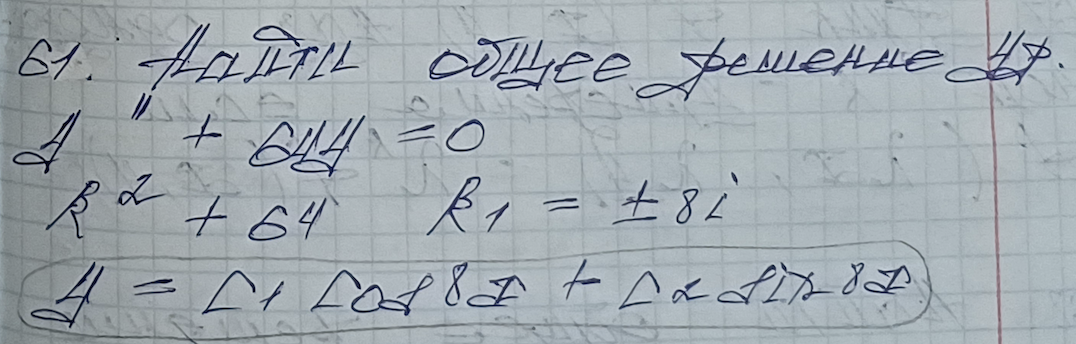 61. Найти общее решение ДУ.
y'' + 64y = 0
k² + 64 k₁ = ± 8i
y = C₁ cos 8x + C₂ sin 8x